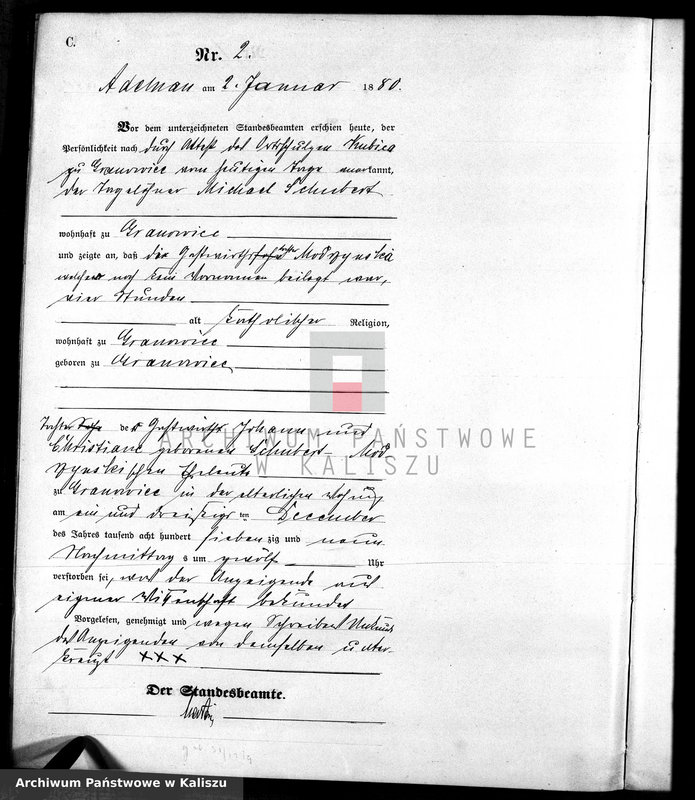 C.
Nr. 2.
Adelnau am 2. Januar 1880.
Vor dem unterzeichneten Standesbeamten erschien heute, der
Persönlichkeit nach durch Attest des Ortsschulzen Kubica
zu Granowiec vom heutigen Tage anerkannt,
der Tagelöhner Michael Schubert
wohnhaft zu Granowiec
und zeigte an, daß die Gastwirths tochter Modrzynska
welcher noch kein Vornamen beilegt war,
vier Stunden
alt katholischer Religion,
wohnhaft zu Granowiec
geboren zu Granowiec
Tochter des Gastwirths Johann und
Christiane geborenen Schubert - Mod-
rzynskischen Eheleute
zu Granowiec in der elterlichen Wohnung
am ein und dreißigsten December
des Jahres tausend acht hundert siebenzig und neun
Nachmittags um zwölf Uhr
verstorben sei, was der Anzeigende aus
eigener Wissenschaft bekundet
Vorgelesen, genehmigt und wegen Schreibens Unkund
des Anzeigenden von demselben unter-
kreuzt XXX
Der Standesbeamte.
ARCHIWUM PAŃSTWOWE
W KALISZU
Archiwum Państwowe w Kaliszu